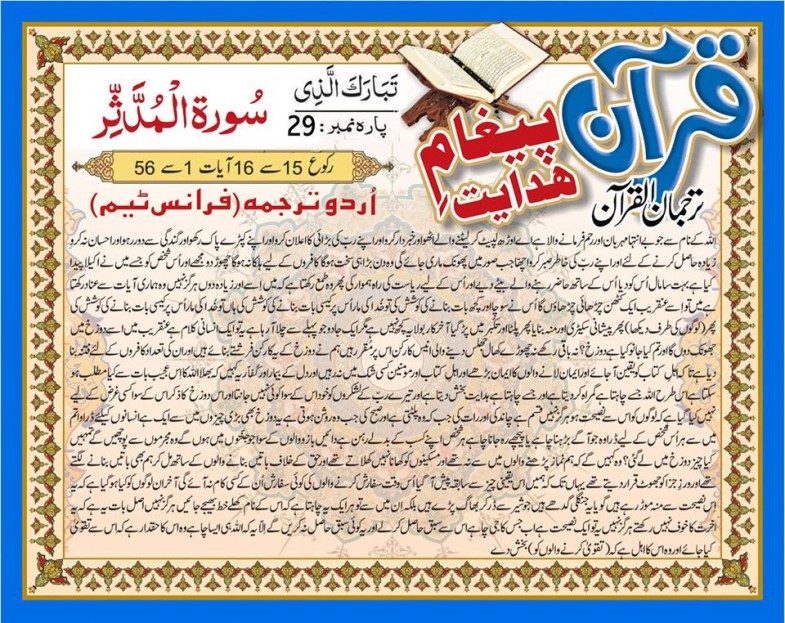 قرآن
پیغامِ
ھدایت
ترجمان القرآن
تَبَارَكَ الَّذِی
پارہ نمبر: 29
سُورۃ الْمُدَّثِّر
رکوع 15 سے 16 آیات 1 سے 56
اُردو ترجمہ (فرانس ٹیم)
اللہ کے نام سے جو بے انتہا مہربان اور رحم فرمانے والا ہے اے اوڑھ لپیٹ کر لیٹنے والے اٹھو اور خبردار کرو اور اپنے ربّ کی بڑائی کا اعلان کرو اور اپنے کپڑے پاک رکھو اور گندگی سے دور رہو اور احسان نہ کرو
زیادہ حاصل کرنے کے لئے اور اپنے ربّ کی خاطر صبر کرو اچھا جب صور میں پھونک ماری جائے گی وہ دن بڑا ہی سخت ہوگا کافروں کے لیے ہلکا نہ ہوگا چھوڑ دو مجھے اور اُس شخص کو جسے میں نے اکیلا پیدا
کیا ہے بہت سا مال اُس کو دیا اُس کے ساتھ حاضر رہنے والے بیٹے دیے اور اُس کے لیے ریاست کی راہ ہموار کی پھر وہ طمع رکھتا ہے کہ میں اِسے اور زیادہ دوں ہرگز نہیں وہ ہماری آیات سے عناد رکھتا
ہے میں تو اسے عنقریب ایک کٹھن چڑھائی چڑھاؤں گا اُس نے سوچا اور کچھ بات بنانے کی کوشش کی تو خُدا کی مار اُس پر کیسی بات بنانے کی کوشش کی ہاں تو خدا کی مار اُس پر کیسی بات بنانے کی کوشش کی
پھر (لوگوں کی طرف دیکھا) پھر پیشانی سکیڑی اور منہ بنایا پھر پلٹا اور تکبّر میں پڑ گیا آخر کار بولا یہ کچھ نہیں ہے مگر ایک جادو جو پہلے سے چلا آ رہا ہے یہ تو ایک انسانی کلام ہے عنقریب میں اسے دوزخ میں
جھونک دوں گا اور تم کیا جانو کیا ہے وہ دوزخ؟ نہ باقی رکھے نہ چھوڑے کھال جھلس دینے والی اُنیس کارکن اُس پر مُقرر ہیں ہم نے دوزخ کے یہ کارکن فرشتے بنائے ہیں اور ان کی تعداد کو کافروں کے لئے فتنہ بنا
دیا ہے تاکہ اہلِ کتاب کو یقین آ جائے اور ایمان لانے والوں کا ایمان بڑھے اور اہلِ کتاب اور مومنین کسی شک میں نہ رہیں اور دل کے بیمار اور کفار یہ کہیں کہ بھلا اللہ کا اِس عجیب بات سے کیا مطلب ہو
سکتا ہے اس طرح اللہ جسے چاہتا ہے گمراہ کر دیتا ہے اور جسے چاہتا ہے ہدایت بخش دیتا ہے اور تیرے ربّ کے لشکروں کو خود اُس کے سوا کوئی نہیں جانتا اور اس دوزخ کا ذکر اس کے سوا کسی غرض کے لیے
نہیں کیا گیا ہے کہ لوگوں کو اس سے نصیحت ہو ہرگز نہیں قسم ہے چاند کی اور رات کی جب کہ وہ پلٹتی ہے اور صبح کی جب وہ روشن ہوتی ہے یہ دوزخ بھی بڑی چیزوں میں سے ایک ہے انسانوں کیلئے ڈراوا تم
میں سے ہر اُس شخص کے لیے ڈراوہ جو آگے بڑھنا چاہے یا پیچھے رہ جانا چاہے ہر شخص اپنے کسب کے بدلے رہن ہے دائیں بازو والوں کے سوا جو جنتوں میں ہوں گے وہ مجرموں سے پوچھیں گے تمہیں
کیا چیز دوزخ میں لے گئی؟ وہ کہیں گے کہ ہم نماز پڑھنے والوں میں سے نہ تھے اور مسکینوں کو کھانا نہیں کھلاتے تھے اور حق کے خلاف باتیں بنانے والوں کے ساتھ مل کر ہم بھی باتیں بنانے لگتے
تھے اور روزِ جزا کو جھوٹ قرار دیتے تھے یہاں تک کہ ہمیں اس یقینی چیز سے سابقہ پیش آ گیا اس وقت سفارش کرنے والوں کی کوئی سفارش اُن کے کسی کام نہ آئے گی آخر ان لوگوں کو کیا ہو گیا ہے کہ یہ
اس نصیحت سے منہ موڑ رہے ہیں گویا یہ جنگلی گدھے ہیں جو شیر سے ڈر کر بھاگ پڑے ہیں بلکہ ان میں سے تو ہر ایک یہ چاہتا ہے کہ اس کے نام کھلے خط بھیجے جائیں ہرگز نہیں اصل بات یہ ہے کہ یہ
آخرت کا خوف نہیں رکھتے ہرگز نہیں یہ تو ایک نصیحت ہے اب جس کا جی چاہے اس سے سبق حاصل کر لے اور یہ کوئی سبق حاصل نہ کریں گے اِلّا یہ کہ اللہ ہی ایسا چاہے وہ اس کا حقدار ہے کہ اس سے تقویٰ
کیا جائے اور وہ اس کا اہل ہے کہ (تقویٰ کرنے والوں کو) بخش دے